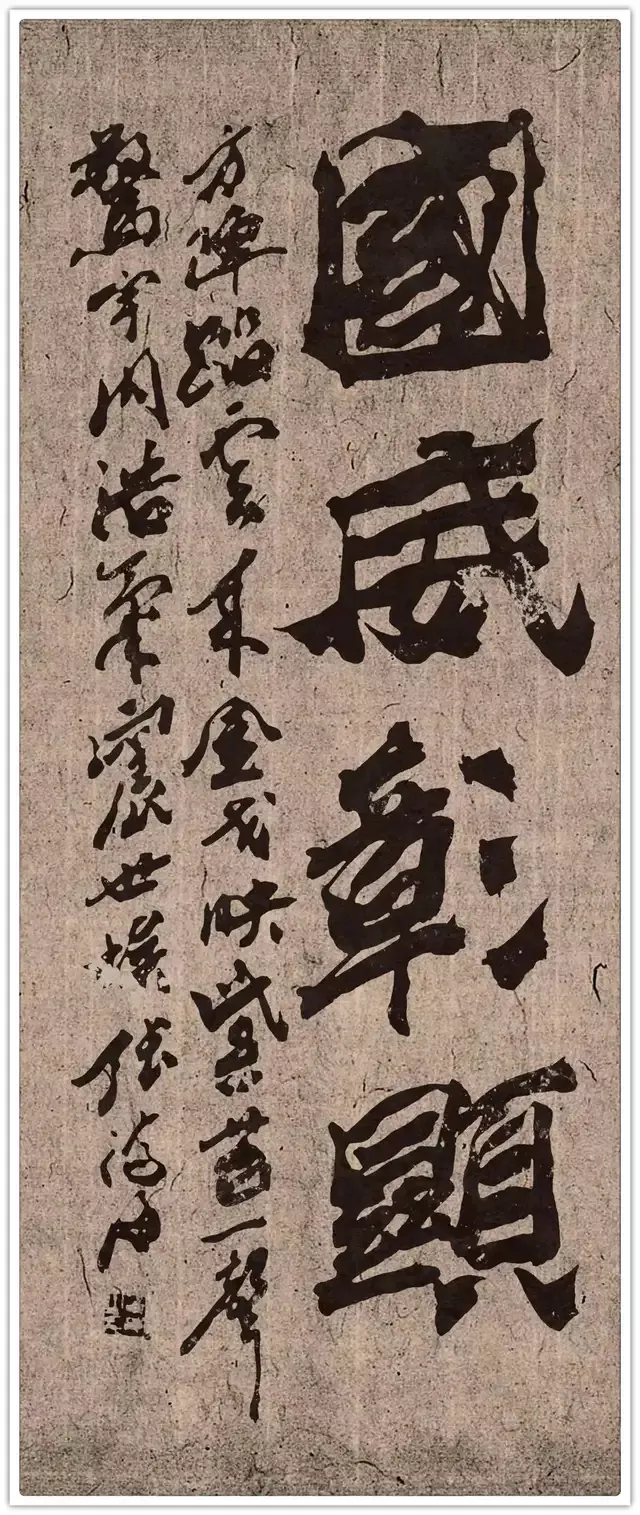 國威彰顯
方陣踏雲來金戈映紫苔一聲
驚宇内浩氣震世埃張